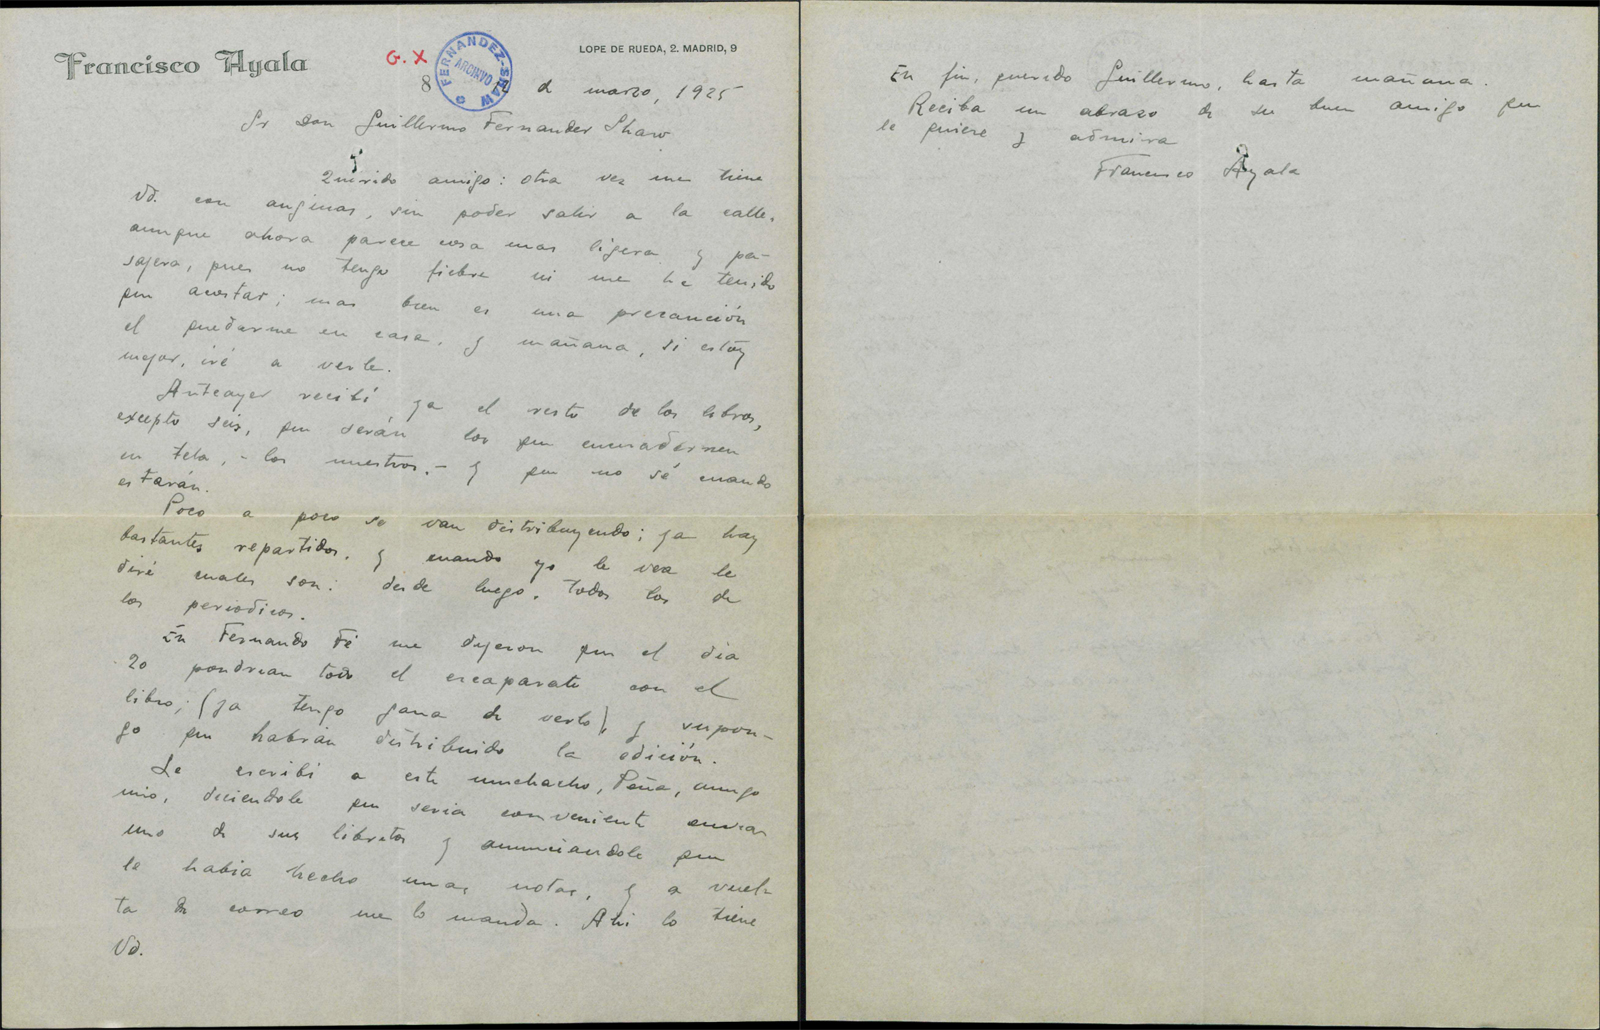 Francisco Ayala
G. X
FERNANDEZ-SHAW
ARCHIVO
LOPE DE RUEDA, 2. MADRID, 9
8 d marzo, 1925
Sr Don Guillermo Fernander Shaw
Querido amigo: otra vez me tiene
Vd. con anginas, sin poder salir a la calle,
aunque ahora parece cosa mas ligera y pa-
sajera, pues no tengo fiebre ni me he tenido
que acostar; mas bien es una precaución
el quedarme en casa. y mañana, si estoy
mejor, iré a verle.
Anteayer recibí ya el resto de los libros,
excepto seis, que serán los que encuadernen
en tela, - los nuestros. - y que no sé cuando
estarán.
Poco a poco se van distribuyendo; ya hay
bastantes repartidos. y cuando yo le vea le
diré cuales son: desde luego, todos los de
los periodicos.
En Fernando Fé me dijeron que el dia
20 pondrian todo el escaparate con el
libro; (ya tengo gana de verlo) y supon-
go que habrán distribuido la edición.
Le escribí a este muchacho, Peña, amigo
mio, diciendole que seria conveniente enviar
uno de sus libretos y anunciandole que
le habia hecho unas notas, y a vuel-
ta de correo me lo manda. Ahi lo tiene
Vd.
En fin, querido Guillermo, hasta mañana.
Reciba un abrazo de su buen amigo que
le quiere y admira
Francisco Ayala